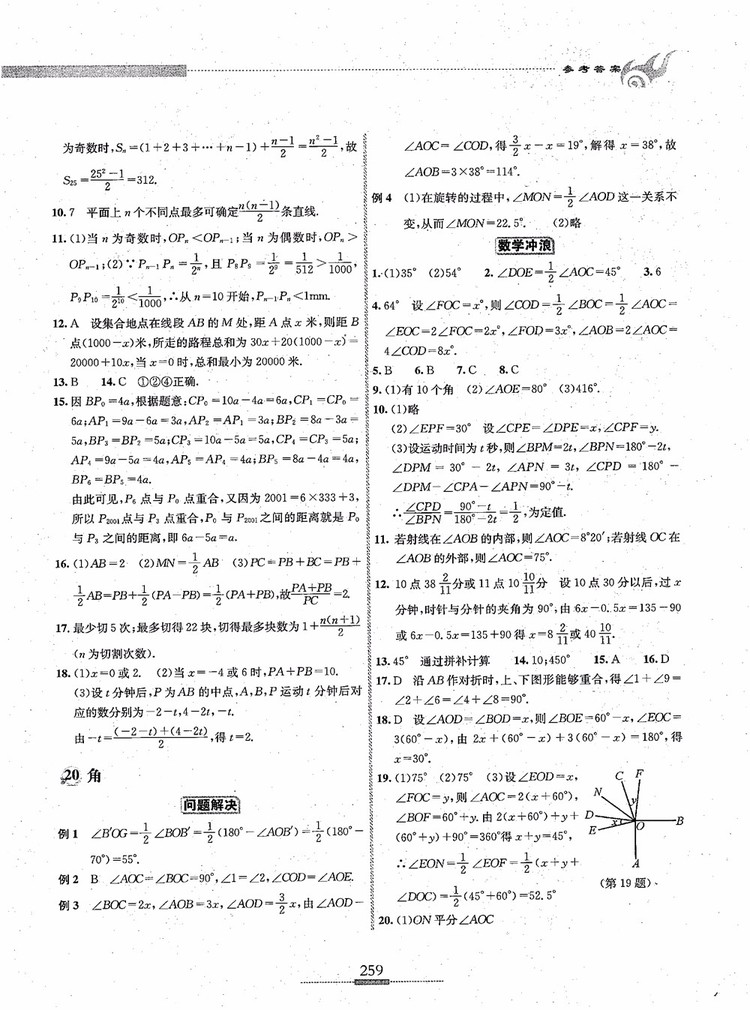 参考答案
为奇数时,Sₙ=(1+2+3+…+n-1)+(n-1)/2=(n²-1)/2,故
S₂₅=(25²-1)/2=312.
10.7 平面上n个不同点最多可确定n(n-1)/2条直线.
11.(1)当n为奇数时,OPₙ<OPₙ₋₁;当n为偶数时,OPₙ>
OPₙ₋₁;(2)∵Pₙ₋₁Pₙ=1/2ⁿ,且P₈P₉=1/2⁹=1/512>1/1000,
P₉P₁₀=1/2¹⁰<1/1000,∴从n=10开始,Pₙ₋₁Pₙ<1mm.
12.A 设集合地点在线段AB的M处,距A点x米,则距B
点(1000-x)米,所走的路程总和为30x+20(1000-x)=
20000+10x,当x=0时,总和最小为20000米.
13.B 14.C ①②④正确.
15.因BP₀=4a,根据题意:CP₀=10a-4a=6a,CP₁=CP₀=
6a;AP₁=9a-6a=3a,AP₂=AP₁=3a;BP₂=8a-3a=
5a,BP₃=BP₂=5a;CP₃=10a-5a=5a,CP₄=CP₃=5a;
AP₄=9a-5a=4a,AP₅=AP₄=4a;BP₅=8a-4a=4a,
BP₆=BP₅=4a.
由此可见,P₆点与P₀点重合,又因为2001=6×333+3,
所以P₂₀₀₁点与P₃点重合,P₀与P₂₀₀₁之间的距离就是P₀
与P₃之间的距离,即6a-5a=a.
16.(1)AB=2 (2)MN=1/2AB (3)PC=PB+BC=PB+
1/2AB=PB+1/2(PA-PB)=1/2(PA+PB),故(PA+PB)/PC=2.
17.最少切5次;最多切得22块,切得最多块数为1+n(n+1)/2
(n为切割次数).
18.(1)x=0或2. (2)当x=-4或6时,PA+PB=10.
(3)设t分钟后,P为AB的中点,A,B,P运动t分钟后对
应的数分别为-2-t,4-2t,-t.
由-t=((-2-t)+(4-2t))/2,得t=2.
20 角
问题解决
例1 ∠B′OG=1/2∠BOB′=1/2(180°-∠AOB′)=1/2(180°-
70°)=55°.
例2 B ∠AOC=∠BOC=90°,∠1=∠2,∠COD=∠AOE.
例3 ∠BOC=2x,∠AOB=3x,∠AOD=3/2x,由∠AOD-
∠AOC=∠COD,得3/2x-x=19°,解得x=38°,故
∠AOB=3×38°=114°.
例4 (1)在旋转的过程中,∠MON=1/2∠AOD这一关系不
变,从而∠MON=22.5°. (2)略
数学冲浪
1.(1)35° (2)54° 2.∠DOE=1/2∠AOC=45° 3.6
4.64° 设∠FOC=x°,则∠COD=1/2∠BOC=1/2∠AOC=
∠EOC=2∠FOC=2x°,∠FOD=3x°,∠AOB=2∠AOC=
4∠COD=8x°.
5.B 6.B 7.C 8.C
9.(1)有10个角 (2)∠AOE=80° (3)416°.
10.(1)略
(2)∠EPF=30° 设∠CPE=∠DPE=x,∠CPF=y.
(3)设运动时间为t秒,则∠BPM=2t,∠BPN=180°-2t,
∠DPM=30°-2t,∠APN=3t,∠CPD=180°-
∠DPM-∠CPA-∠APN=90°-t.
∴∠CPD/∠BPN=(90°-t)/(180°-2t)=1/2,为定值.
11.若射线在∠AOB的内部,则∠AOC=8°20′;若射线OC在
∠AOB的外部,则∠AOC=75°.
12.10点38 2/11分或11点10 10/11分 设10点30分以后,过x
分钟,时针与分针的夹角为90°,由6x-0.5x=135-90
或6x-0.5x=135+90得x=8 2/11或40 10/11.
13.45° 通过拼补计算 14.10;450° 15.A 16.D
17.D 沿AB作对折时,上、下图形能够重合,得∠1+∠9=
∠2+∠6=∠4+∠8=90°.
18.D 设∠AOD=∠BOD=x,则∠BOE=60°-x,∠EOC=
3(60°-x),由2x+(60°-x)+3(60°-x)=180°,得
x=30°.
19.(1)75° (2)75° (3)设∠EOD=x,
∠FOC=y,则∠AOC=2(x+60°),
∠BOF=60°+y.由2(x+60°)+y+
(60°+y)+90°=360°得x+y=45°,
∴∠EON=1/2∠EOF=1/2(x+y+
∠DOC)=1/2(45°+60°)=52.5°
C F
N
y
D
x
E
O
B
A
(第19题)
20.(1)ON平分∠AOC
259